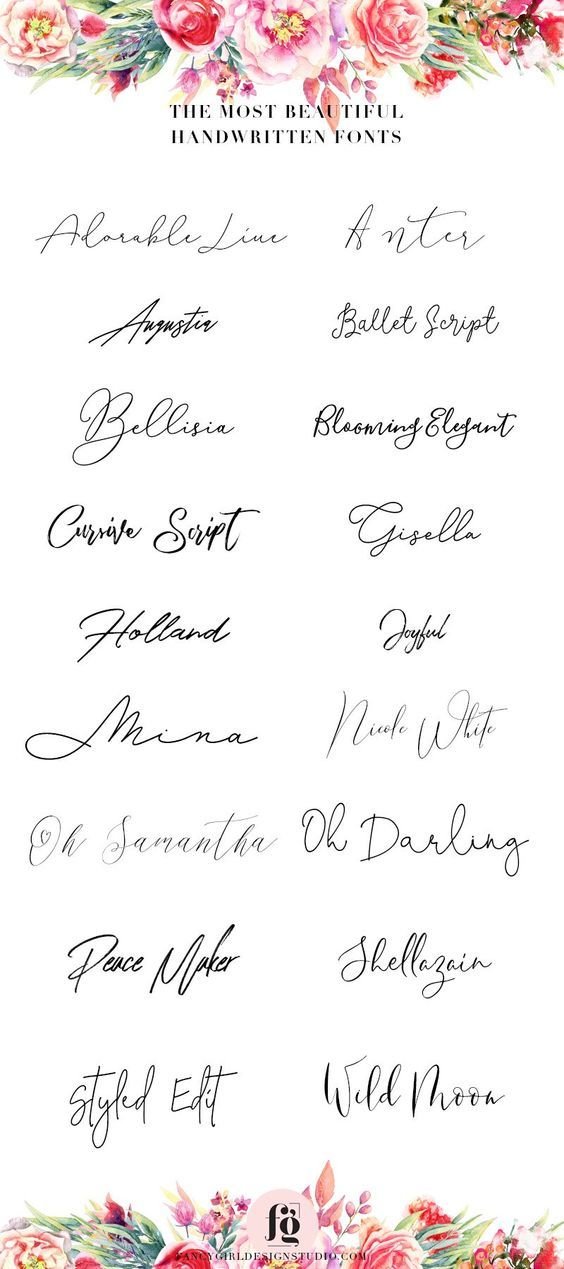 THE MOST BEAUTIFUL
HANDWRITTEN FONTS
Adorable Line Anter
Augustia Ballet Script
Bellisia Blooming Elegant
Cursive Script Gisella
Holland Joyful
Mina Nicole White
Oh Samantha Oh Darling
Peace Maker Shellazain
Styled Edit Wild Moon
fg
FANCYGIRLDESIGNSTUDIO.COM